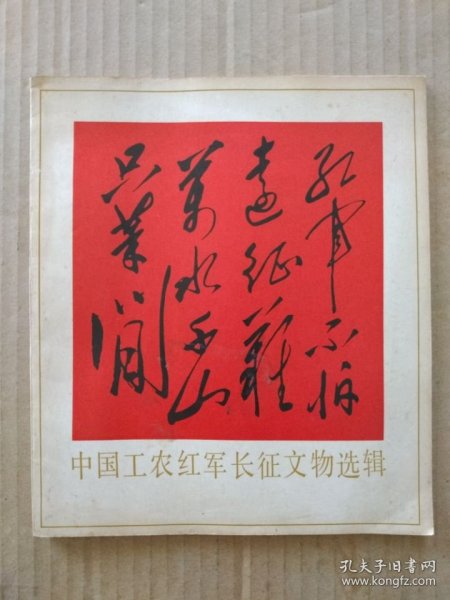 红军不怕
远征难
万水千山
只等闲
中国工农红军长征文物选辑
孔夫子旧书网
www.kongfz.com